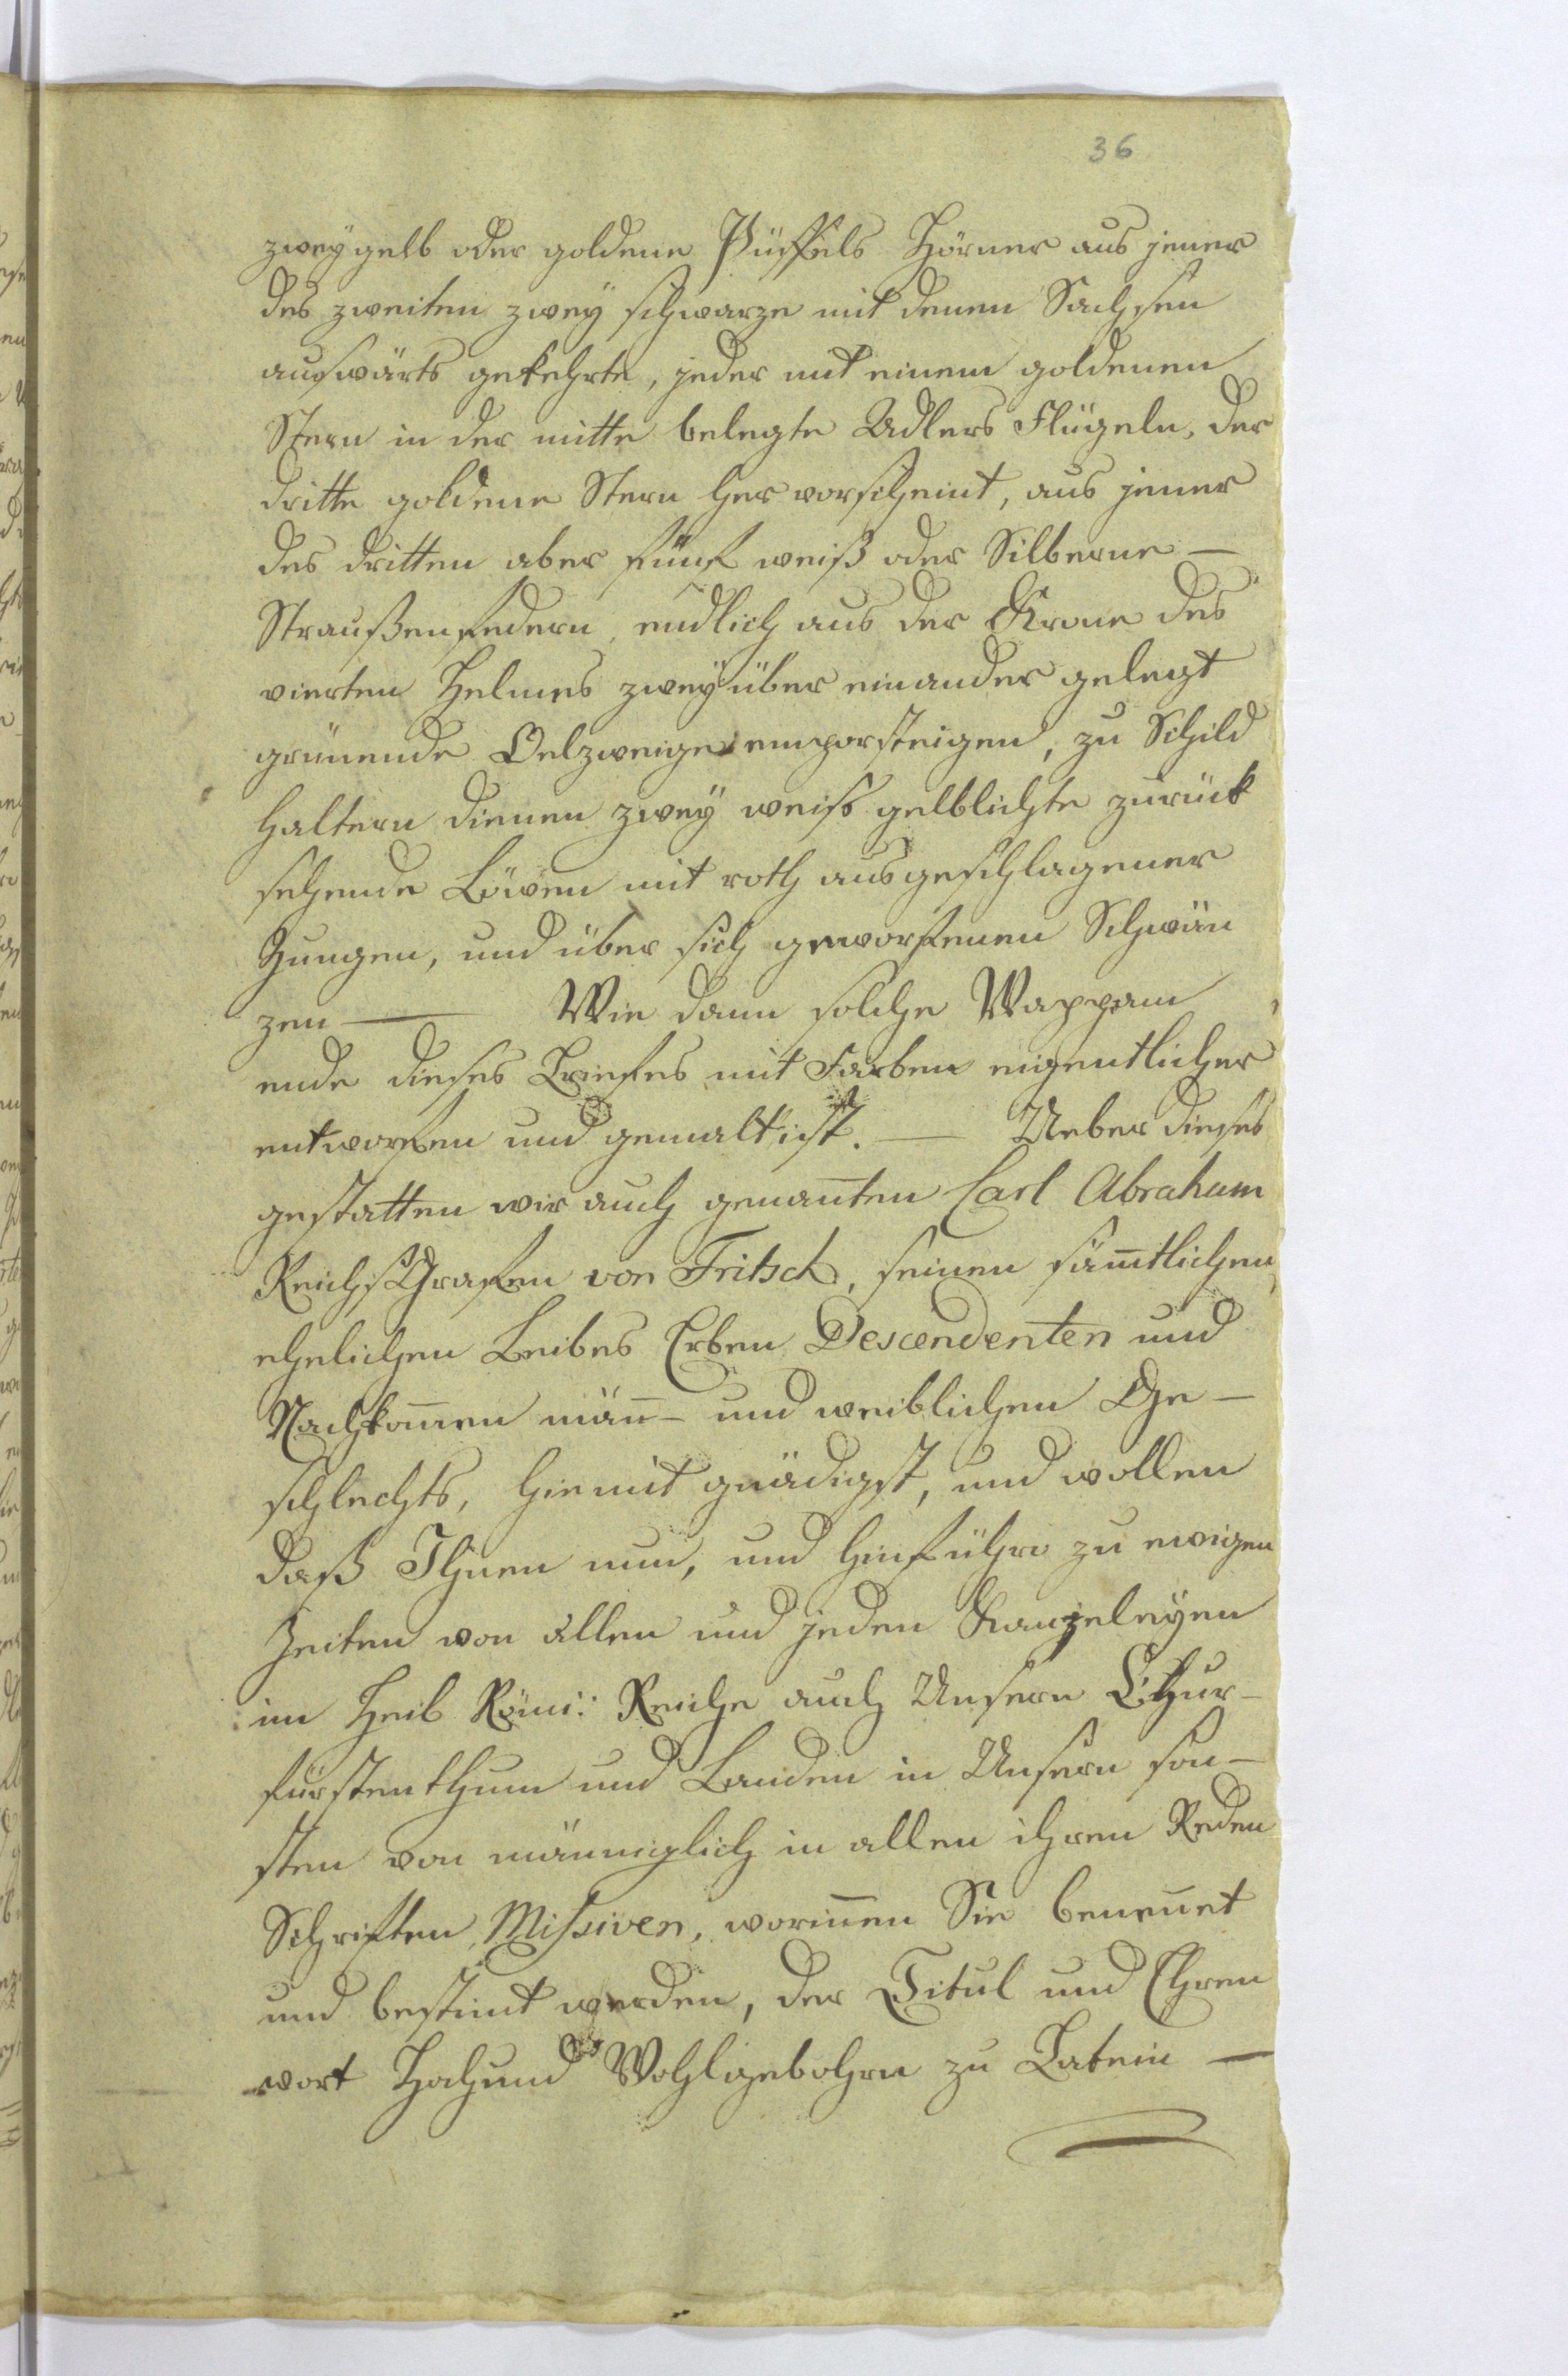 36
zwey gelb oder goldene Püffels Hörner aus jener
des zweiten zwey schwarze mit denen Sachsen
auswärts gekehrte, jeder mit einem goldenen
Stern in der mitte belegte Adlers Flügeln, der
dritte goldene Stern hervorscheint, aus jener
des dritten aber fünf weiß oder Silberne –
Straußenfedern, endlich aus der Krone des
vierten Helmes zwey über einander gelegt
grünende Oelzweige emporsteigen, zu Schild
haltern dienen zwey weiß gelblichte zurück
sehende Löwen mit roth ausgeschlagener
Zungen, und über sich geworfenen Schwän
zen — Wie dann solche Wappam
ende dieses Briefes mit Farben eigentlicher
entworfen und gemalt ist. — Ueber dieses
gestatten wir auch genan̄ten Carl Abraham
Reichs Grafen von Fritsch, seinen säm̄tlichen
ehelichen Leibes Erben Descendenten und
Nachkom̄en män̄- und weiblichen Ge-
schlechts, hiemit gnädigst, und wollen
daß Ihnen nun, und hinführo zu ewigen
Zeiten von allen und jeden Kanzeleyen
im Heil Römi: Reiche auch Unsern Chur-
fürstenthum und Landen in Unsern son-
sten von männiglich in allen ihren Reden
Schriften, Missiven, worin̄en Sie benen̄et
und bestimt werden, der Titul und Ehren
wort Hochund Wohlgebohrn zu Latein —